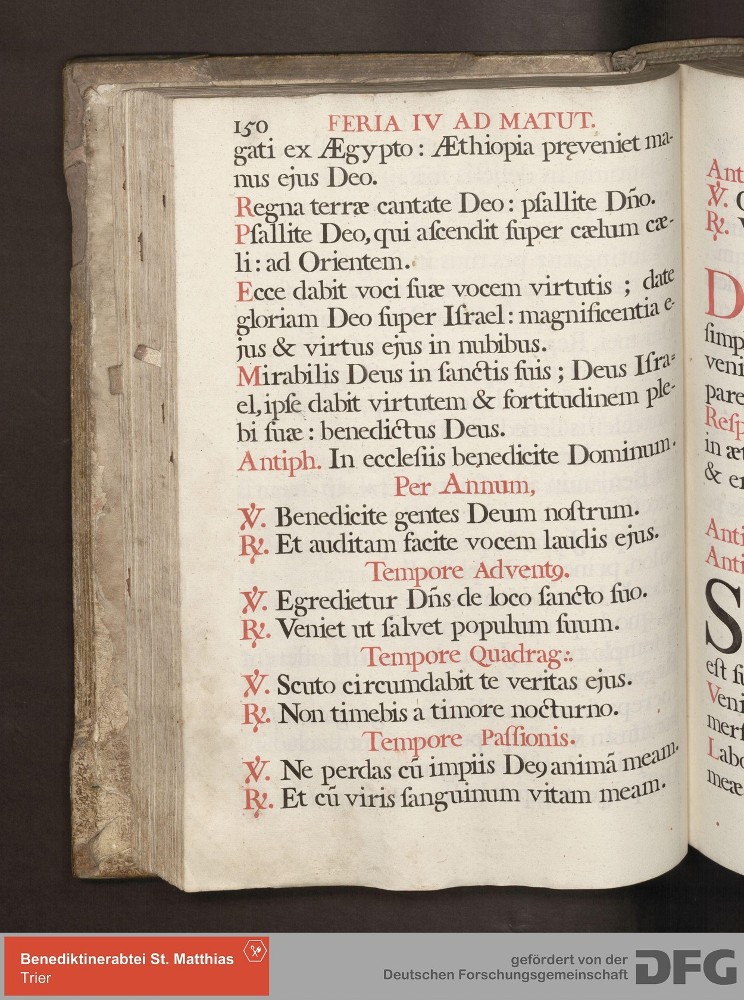 150 FERIA IV AD MATUT.
gati ex Ægypto: Æthiopia pręveniet ma-
nus ejus Deo.
Regna terræ cantate Deo: pſallite Dño.
Pſallite Deo, qui aſcendit ſuper cælum cæ-
li: ad Orientem.
Ecce dabit voci ſuæ vocem virtutis ; date
gloriam Deo ſuper Iſrael: magnificentia e-
jus & virtus ejus in nubibus.
Mirabilis Deus in ſanctis ſuis ; Deus Iſra=
el, ipſe dabit virtutem & fortitudinem ple-
bi ſuæ: benedictus Deus.
Antiph. In eccleſiis benedicite Dominum.
Per Annum,
℣. Benedicite gentes Deum noſtrum.
℟. Et auditam facite vocem laudis ejus.
Tempore Adventꝰ.
℣. Egredietur Dñs de loco ſancto ſuo.
℟. Veniet ut ſalvet populum ſuum.
Tempore Quadrag:.
℣. Scuto circumdabit te veritas ejus.
℟. Non timebis a timore nocturno.
Tempore Paſſionis.
℣. Ne perdas cū impiis Deꝰ animā meam.
℟. Et cū viris ſanguinum vitam meam.
Ant
℣.
℟.
D
ſimp
veni
pare
Reſp
in æt
& e
Anti
Anti
S
eſt ſu
Veni
merſ
Labo
meæ
Benediktinerabtei St. Matthias
Trier
gefördert von der
Deutschen Forschungsgemeinschaft
DFG